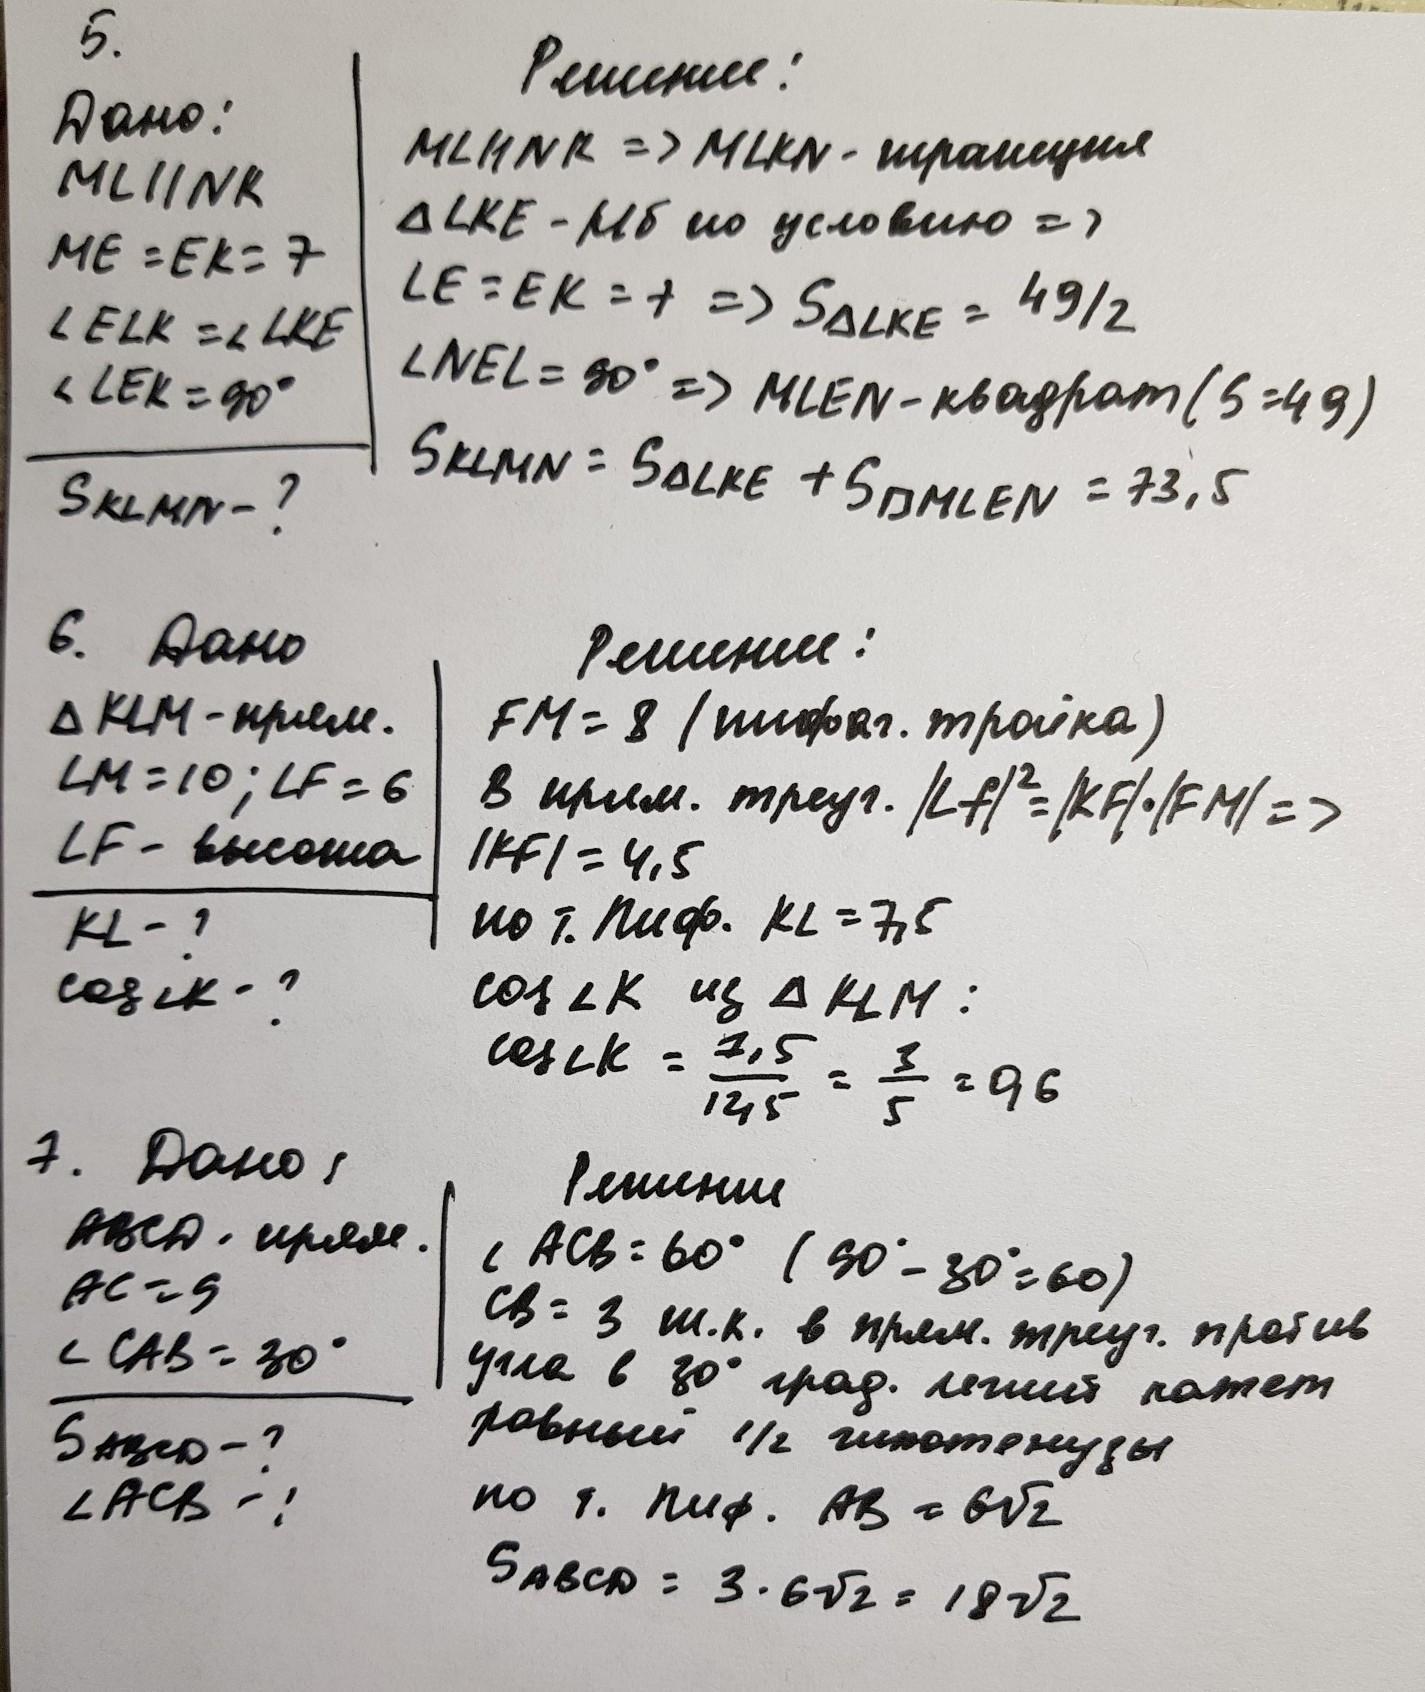 5.
Дано:
ML||NK
ME = EK = 7
∠ELK = ∠LKE
∠LEK = 90°
SKLMN - ?
Решение:
ML||NK => MLKN - трапеция
△LKE - р/б по условию =>
LE = EK = 7 => S△LKE = 49/2
∠NEL = 90° => MLEN - квадрат (S = 49)
SKLMN = S△LKE + S□MLEN = 73,5
6. Дано
△KLM - прям.
LM = 10; LF = 6
LF - высота
KL - ?
cos∠K - ?
Решение:
FM = 8 (пифаг. тройка)
В прям. треуг. |Lf|² = |KF|·|FM| =>
|KF| = 4,5
по т. Пиф. KL = 7,5
cos∠K из △KLM:
cos∠K = 7,5/12,5 = 3/5 = 0,6
7. Дано:
ABCD - прям.
AC = 9
∠CAB = 30°
SABCD - ?
∠ACB - ?
Решение
∠ACB = 60° (90° - 30° = 60)
CB = 3 т.к. в прям. треуг. против
угла в 30° град. лежит катет
равный 1/2 гипотенузы
по т. Пиф. AB = 6√2
SABCD = 3 · 6√2 = 18√2